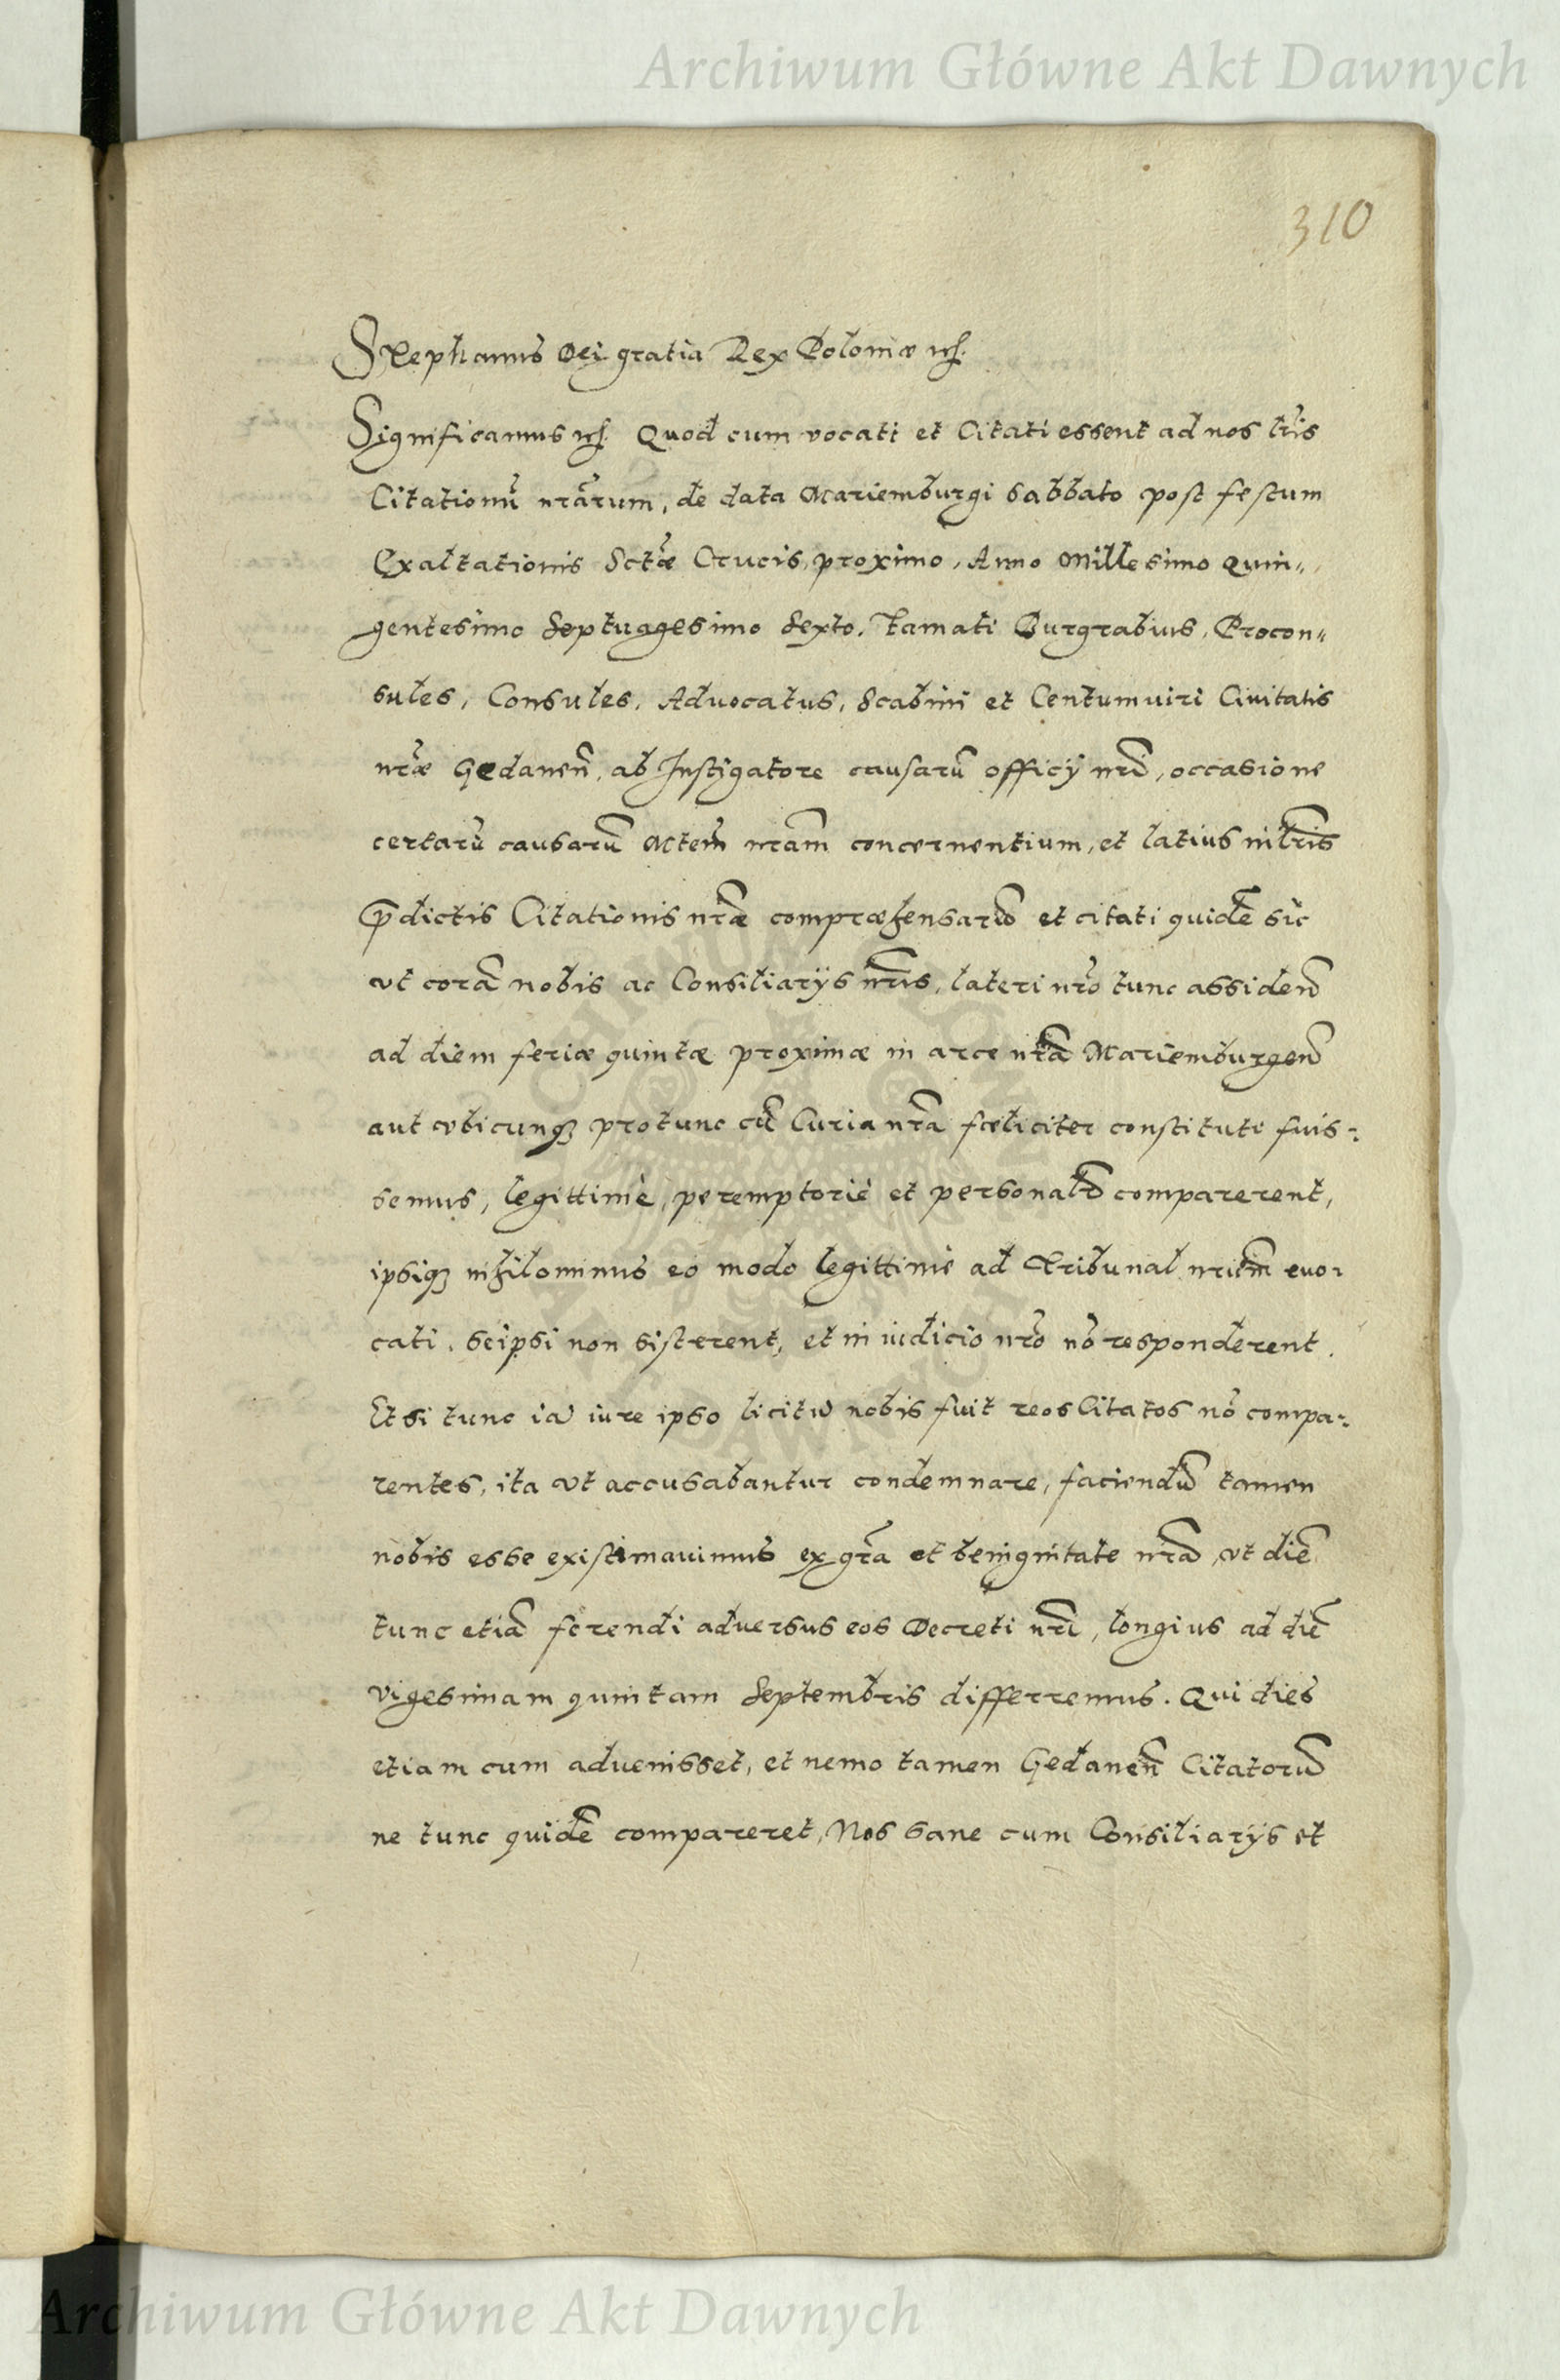 Archiwum Główne Akt Dawnych
310
Stephanus Dei gratia Rex Poloniæ etc.
Significamus etc. Quod cum vocati et Citati essent ad nos lr̃is
Citationũ nr̃arum, de data Mariemburgi Sabbato post festum
Exaltationis Sctæ Crucis proximo, Anno Millesimo Quin„
gentesimo Septuagesimo Sexto, Famati Burgrabius, Procon„
sules, Consules, Advocatus, Scabini et Centumviri Civitatis
nr̃æ Gedanen̄, ab Instigatore causarũ officij nr̃i, occasione
certarũ causarũ Mtem̃ nr̃am concernentium, et latius in lr̃is
p̄dictis Citationis nr̃æ compræhensarũ et citati quidẽ sic
vt corã nobis ac Consiliarijs nr̃is, lateri nr̃o tunc assideñ
ad diem feriæ quintæ proximæ in arce nr̃a Mariemburgeñ
aut vbicunq₃ protunc cũ Curia nr̃a fœliciter constituti fuis-
semus, legittimè, peremptoriè et personalr̃ comparerent,
ipsiq₃ nihilominus eo modo legittimè ad Tribunal nr̃um evo-
cati, seipsi non sisterent, et in iudicio nr̃o nõ responderent.
Etsi tunc iã iure ipso licitũ nobis fuit reos Citatos nõ compa-
rentes, ita vt accusabantur condemnare, faciendũ tamen
nobis esse existimavimus ex gr̃a et benignitate nr̃a, vt diẽ
tunc etiã ferendi adversus eos Decreti nr̃i, longius ad diẽ
vigesimam quintam Septembris differremus. Qui dies
etiam cum advenisset, et nemo tamen Gedanen̄ Citatorũ
ne tunc quidẽ compareret, Nos sane cum Consiliarijs et
Archiwum Główne Akt Dawnych